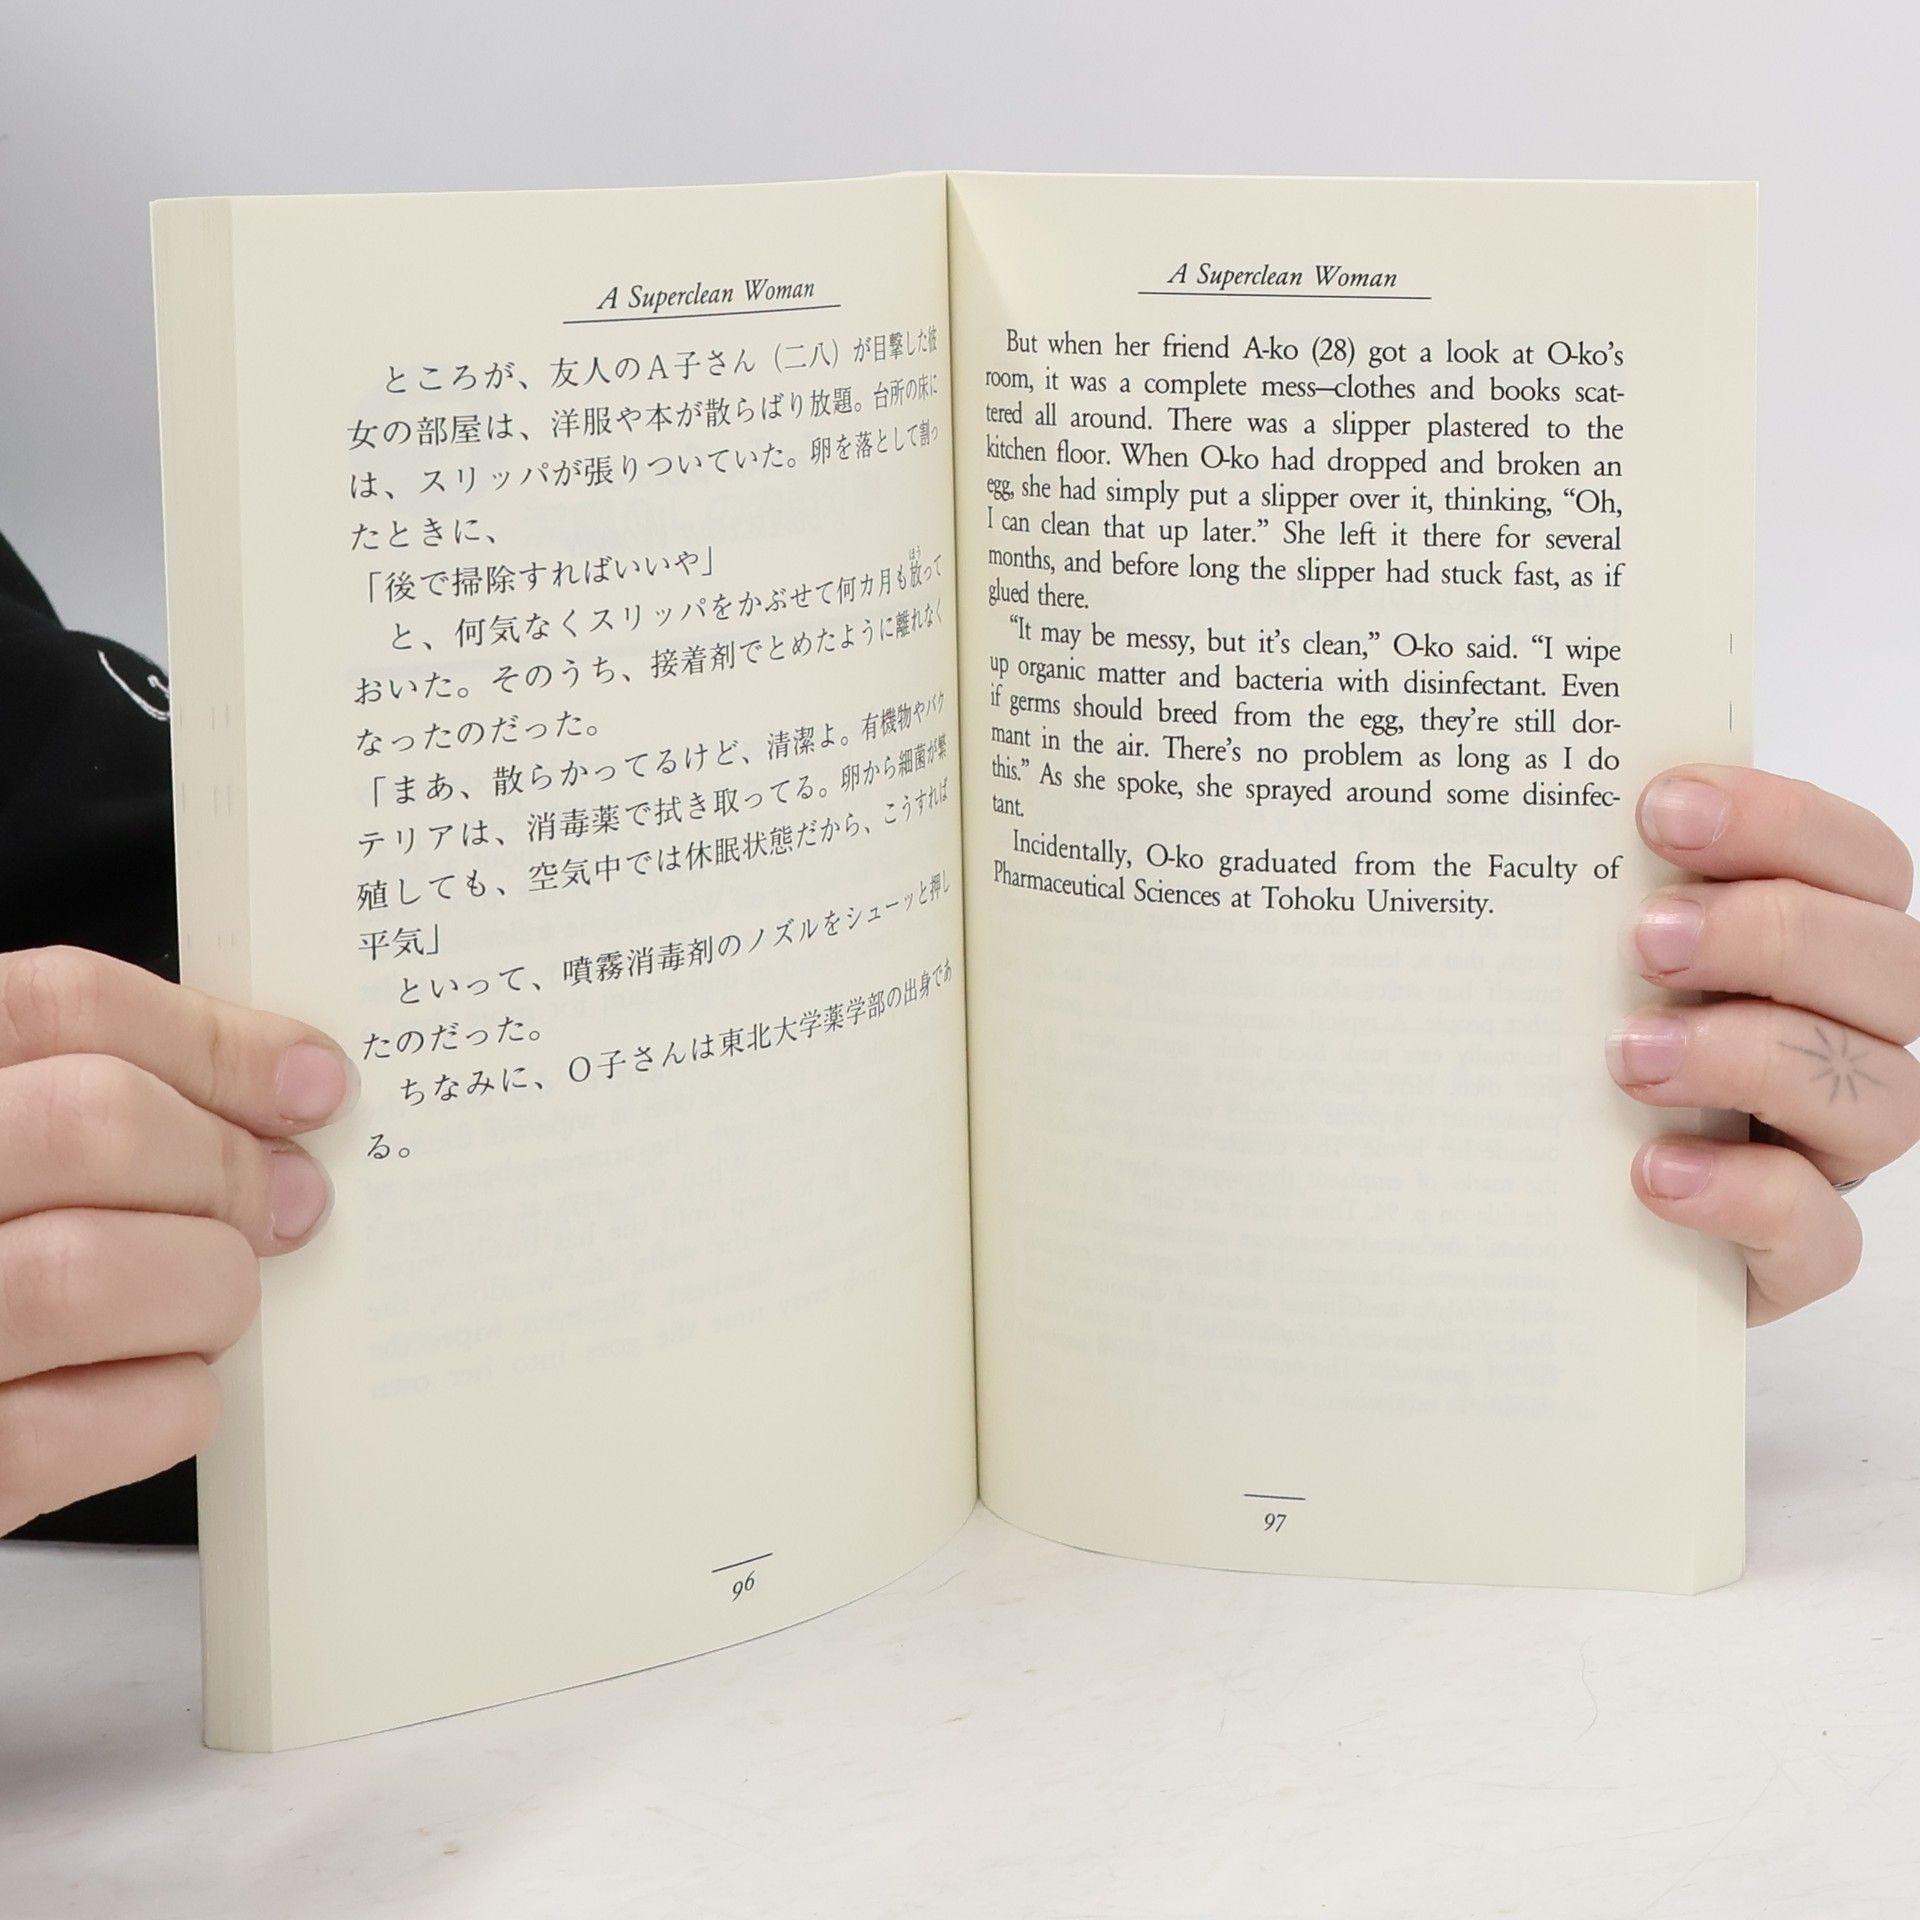 A Superclean Woman
ところが、友人のA子さん（二八）が目撃した彼
女の部屋は、洋服や本が散らばり放題。台所の床に
は、スリッパが張りついていた。卵を落として割っ
たときに、
「後で掃除すればいいや」
と、何気なくスリッパをかぶせて何カ月も放って
ほう
おいた。そのうち、接着剤でとめたように離れなく
なったのだった。
「まあ、散らかってるけど、清潔よ。有機物やバク
テリアは、消毒薬で拭き取ってる。卵から細菌が繁
殖しても、空気中では休眠状態だから、こうすれば
平気」
といって、噴霧消毒剤のノズルをシューッと押し
たのだった。
ちなみに、O子さんは東北大学薬学部の出身であ
る。
96
A Superclean Woman
But when her friend A-ko (28) got a look at O-ko's
room, it was a complete mess—clothes and books scat-
tered all around. There was a slipper plastered to the
kitchen floor. When O-ko had dropped and broken an
egg, she had simply put a slipper over it, thinking, “Oh,
I can clean that up later.” She left it there for several
months, and before long the slipper had stuck fast, as if
glued there.
“It may be messy, but it's clean,” O-ko said. “I wipe
up organic matter and bacteria with disinfectant. Even
if germs should breed from the egg, they're still dor-
mant in the air. There's no problem as long as I do
this.” As she spoke, she sprayed around some disinfec-
tant.
Incidentally, O-ko graduated from the Faculty of
Pharmaceutical Sciences at Tohoku University.
97